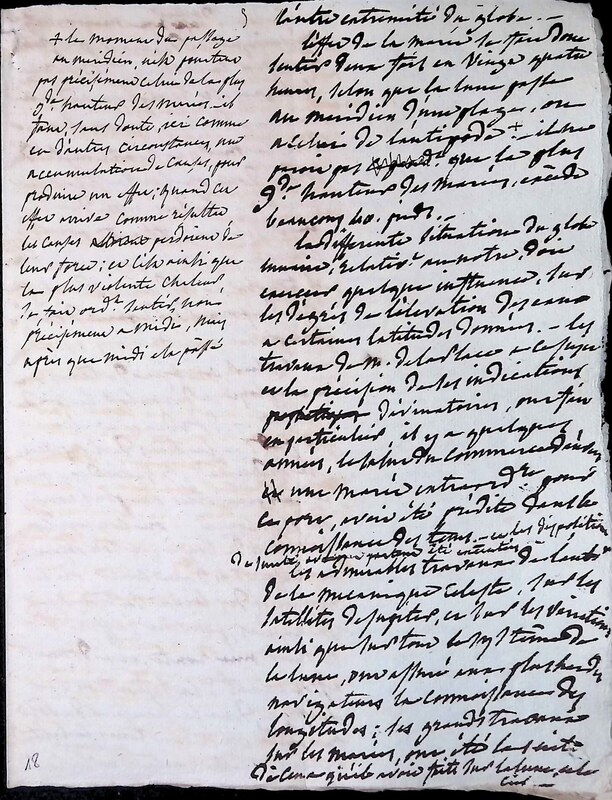 l'autre extremité du globe. —
L'effet de la marée se fait donc
sentir deux fois en vingt quatre
heures, selon que la lune passe
au meridien d'une plage, ou
a celui de l'antipode + — il ne
paroit pas que la plus
gde hauteur des marées, excede
beaucoup 40. pieds. —
la differente situation du globe
lunaire, relativt au notre, doit
exercer quelque influence, sur
les degrés de l'elevation des eaux
a certaines latitudes données. — les
travaux de m. de la place a ce sujet
et la précision de ses indications
divinatoires, ont fait
en particulier, il y a quelques
années, le salut du commerce
une marée extraordre pour
ce jour, avoit été prédite dans la
connoissance des tems. — et les dispositions
de sureté, avoient partout été
les admirables travaux de l'auteur
de la mecanique celeste, sur les
satellites de jupiter, et sur les variations
ainsi que sur tout le systême de
la lune, ont assuré aux plus hardis
navigateurs la connoissance des
longitudes; ses grands travaux
sur les marées, ont été la suite
de ceux qu'il avoit faits sur la lune, et le
ciel. —
+ le moment du passage
au meridien, n'est pourtant
pas précisement celui de la plus
gde hauteur des marées — il
faut, sans doute, ici comme
en d'autres circonstances, une
accumulation de causes, pour
produire un effet; quand cet
effet arrive comme résultat
les causes perdoient de
leur force; et c'est ainsi que
la plus violente chaleur
se fait ordt sentir, non
précisement a midi, mais
après que midi est passé
18